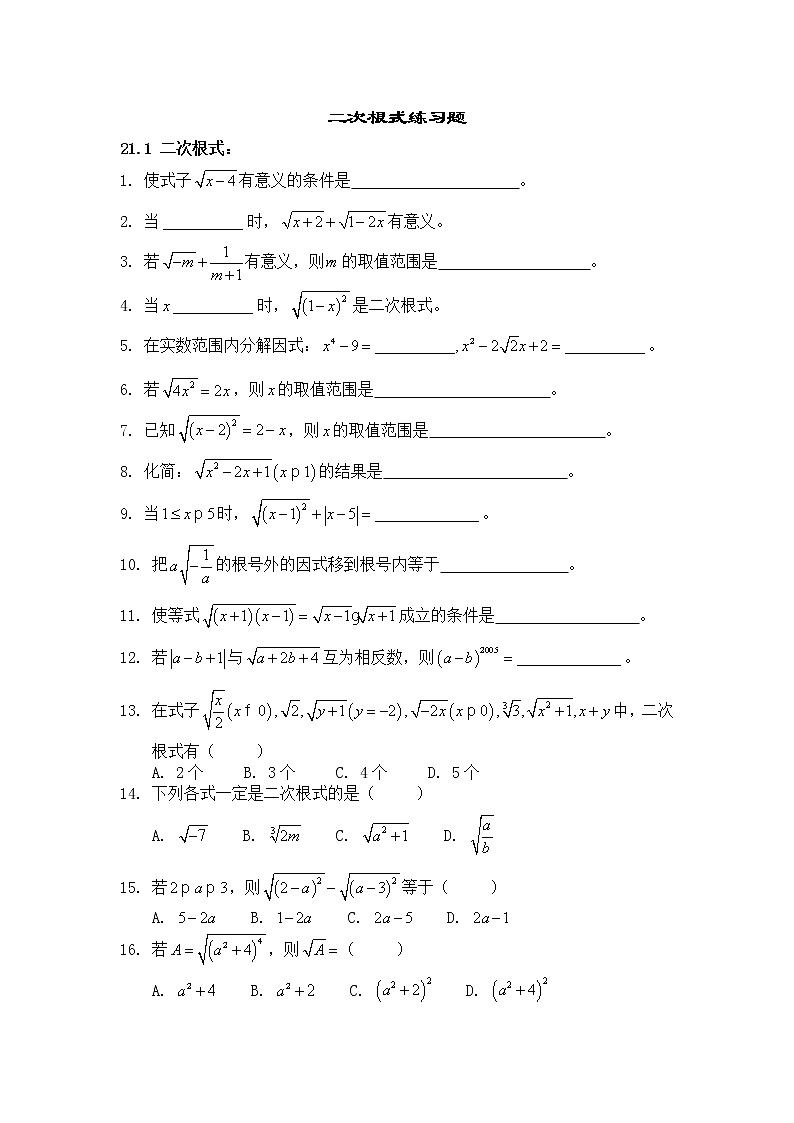 二次根式练习题
21.1 二次根式：
1. 使式子 √(x−4) 有意义的条件是____________________。
2. 当__________时，√(x+2) + √(1−2x) 有意义。
3. 若 √(−m) + 1/(m+1) 有意义，则 m 的取值范围是__________________。
4. 当 x__________时，√((1−x)²) 是二次根式。
5. 在实数范围内分解因式：x⁴−9=__________,x²−2√2x+2=__________。
6. 若 √(4x²) = 2x，则 x 的取值范围是_____________________。
7. 已知 √((x−2)²) = 2−x，则 x 的取值范围是_____________________。
8. 化简：√(x²−2x+1) (x p 1) 的结果是______________________。
9. 当 1≤x p 5 时，√((x−1)²) + |x−5| =_____________。
10. 把 a√(−1/a) 的根号外的因式移到根号内等于________________。
11. 使等式 √((x+1)(x−1)) = √(x−1) g √(x+1) 成立的条件是_________________。
12. 若 |a−b+1| 与 √(a+2b+4) 互为相反数，则 (a−b)²⁰⁰⁵ =_____________。
13. 在式子 √(x/2) (x f 0), √2, √(y+1) (y=−2), √(−2x) (x p 0), ∛3, √(x²+1), x+y 中，二次
根式有（ ）
A. 2个 B. 3个 C. 4个 D. 5个
14. 下列各式一定是二次根式的是（ ）
A. √(−7) B. ∛(2m) C. √(a²+1) D. √(a/b)
15. 若 2 p a p 3，则 √((2−a)²) − √((a−3)²) 等于（ ）
A. 5−2a B. 1−2a C. 2a−5 D. 2a−1
16. 若 A=√((a²+4)⁴)，则 √A =（ ）
A. a²+4 B. a²+2 C. (a²+2)² D. (a²+4)²